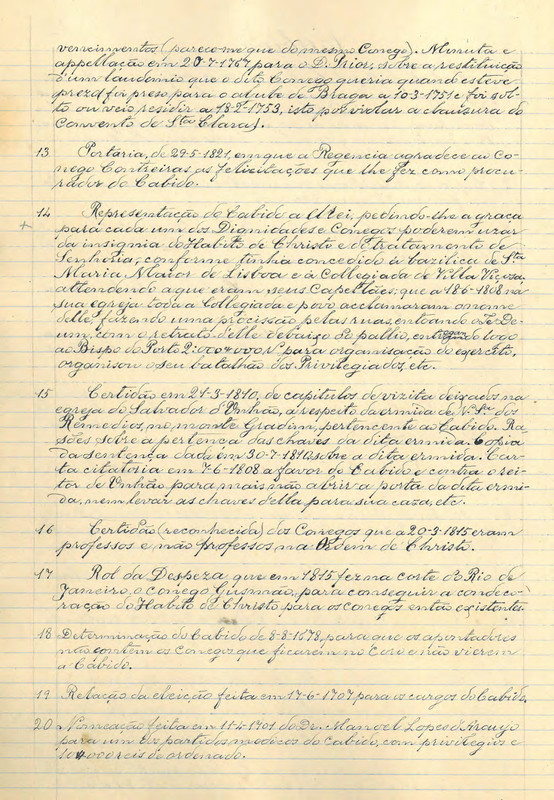 vencimentos (pareceme que do mesmo Conego). Minuta e
appellação em 20-7-1767 para o D. Prior, sobre a restituição
d'um laudemio que o dito Conego queria quando esteve
prezo foi preso para o alube de Braga a 10-3-1751 e foi sol-
to ou veio residir a 18-8-1753, isto por violar a clausura do
Convento de Sta Clara).
13 Portaria, de 29-5-1821, em que a Regencia agradece ao Co-
nego Contreiras, as felicitações que lhe fez como procu-
rador do Cabido.
14 Representação do Cabido a El Rei, pedindo-lhe a graça
+ para cada um dos Dignidades e Conegos poderem uzar
da insignia do Habito de Christo e do tratamento de
Senhoria, conforme tinha concedido á bazilica de Sta
Maria Maior de Lisboa e á Collegiada de Villa Viçosa,
attendendo a que eram seus Capellães; que a 18-6-1808 na
sua egreja toda a Collegiada e povo acclamaram o nome
d'elle, fazendo uma procissão pelas ruas, entoando o Te De-
um com o retrato d'elle debaixo do pallio, entregando logo
ao Bispo do Porto 2:000$000 rs para organisação do exercito,
organisou o seu batalhão dos Privilegiados, etc.
15 Certidão em 21-3-1810, de capitulos de vizita deixados na
egreja do Salvador d'Unhão, a respeito da ermida de N. Sra dos
Remedios, no monte Gradim, pertencente ao Cabido. Ra-
sões sobre a pertença das chaves da dita ermida. Copia
da sentença dada em 30-7-1810 sobre a dita ermida. Car-
ta citatoria em 7-6-1808 a favor do Cabido e contra o rei-
tor de Unhão para mais não abrir a porta da dita ermi-
da, nem levar as chaves d'ella para sua caza, etc.
16 Certidão (reconhecida) dos Conegos que a 20-3-1815 eram
professos e não professos, na Ordem de Christo.
17 Rol da Despeza que em 1815 fez na corte do Rio de
Janeiro, o conego Gusmão, para conseguir a condeco-
ração do Habito de Christo para os conegos então existentes.
18 Determinação do Cabido de 8-8-1678, para que os apontadores
não contem os Conegos que ficarem no Coro e não vierem
a Cabido.
19 Relação da eleição feita em 17-6-1707 para os cargos do Cabido.
20 Nomeação feita em 11-4-1701 do Dr. Manoel Lopes d'Araujo
para um dos partidos medicos do Cabido, com privilegios e
10$000 reis de ordenado.